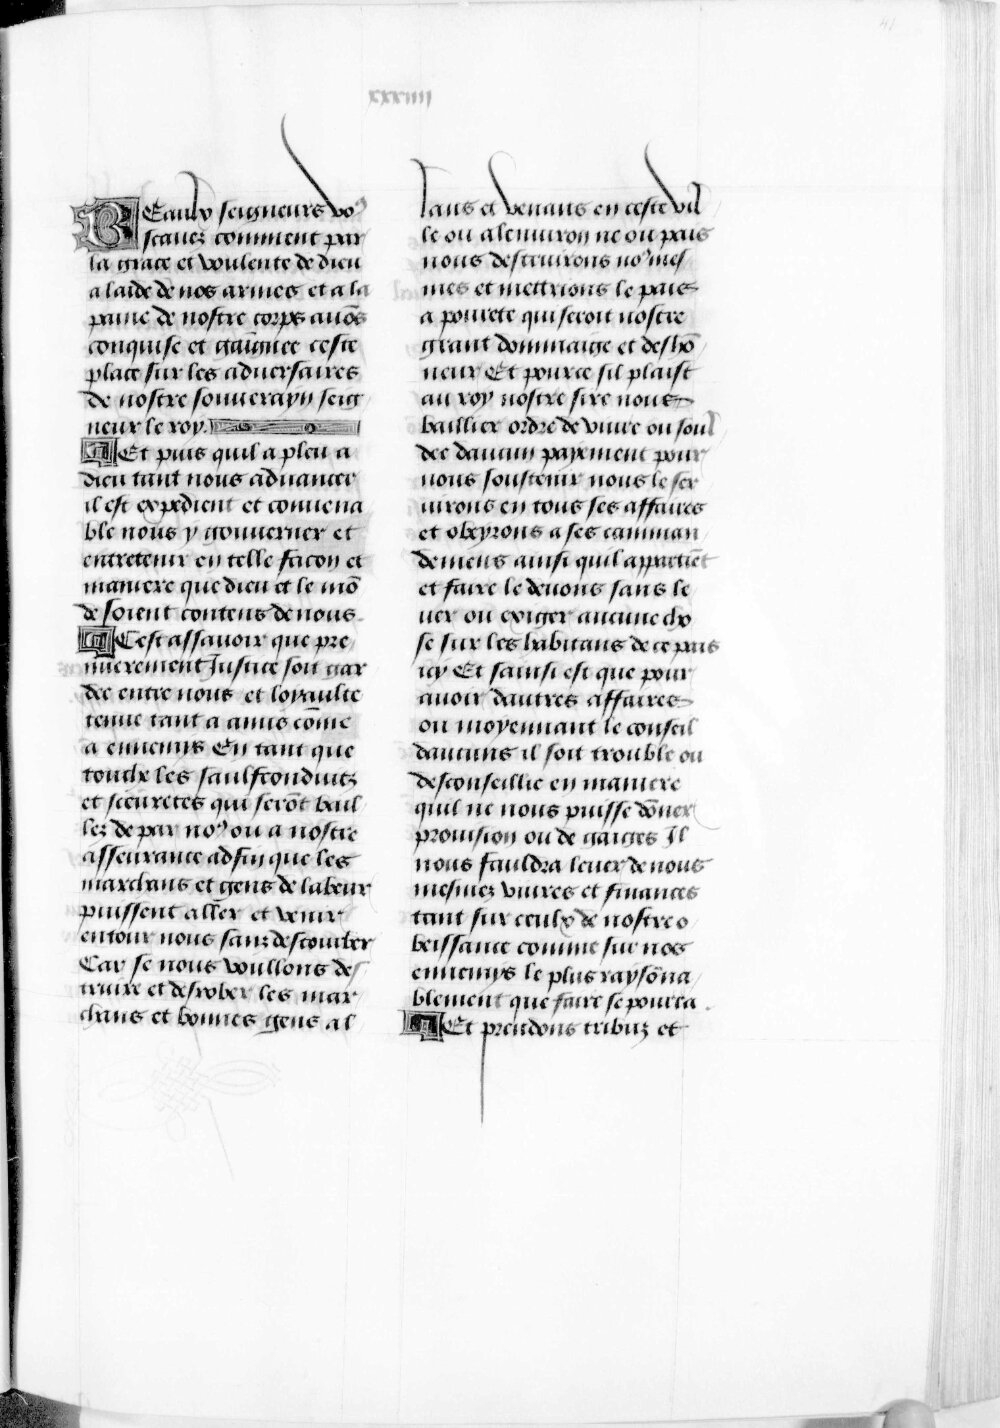 41
xxxiiii
BEaulx seigneurs voꝰ
scauez comment par
la grace et voulente de dieu
a laide de nos armes et a la
paine de nostre corps auõs
conquise et gaignee ceste
place sur les aduersaires
de nostre souuerayn seig
neur le roy.
Et puis quil a pleu a
dieu tant nous aduancer
il est expedient et conuena
ble nous y gouuerner et
entretenir en telle facon et
maniere que dieu et le mõ
de soient contens de nous.
Cest assauoir que pre
mierement Justice soit gar
dee entre nous et loyaulte
tenue tant a amis cõme
a ennemys En tant que
touche les saulfconduitz
et seeuretes qui serõt bail
lez de par noꝰ ou a nostre
asseurance adfin que les
marchans et gens de labeur
puissent aller et venir
entour nous sans destourber
Car se nous voullons des
truire et desrober les mar
chans et bonnes gens al
lans et venans en ceste vil
le ou alenuiron ne ou pais
nous destruirons noꝰ mes
mes et mettrions le pais
a pourete qui seroit nostre
grant dommaige et deshõ
neur Et pource sil plaist
au roy nostre sire nous
baillier ordre de viure ou soul
dee daucun payement pour
nous soustenir nous le ser
uirons en tous ses affaires
et obeyrons a ses comman
demens ainsi quil appartiẽt
et faire le deuons sans le
uer ou exiger aucune cho
se sur les habitans de ce pais
icy Et sainsi est que pour
auoir dautres affaires
ou moyennant le conseil
daucuns il soit trouble ou
desconseillie en maniere
quil ne nous puisse dõner
prouision ou de gaiges Il
nous fauldra leuer de nous
mesmez viures et finances
tant sur ceulx de nostre o
beissance comme sur nos
ennemys le plus raysõna
blement que faire se pourra.
Et prendons tribuz et